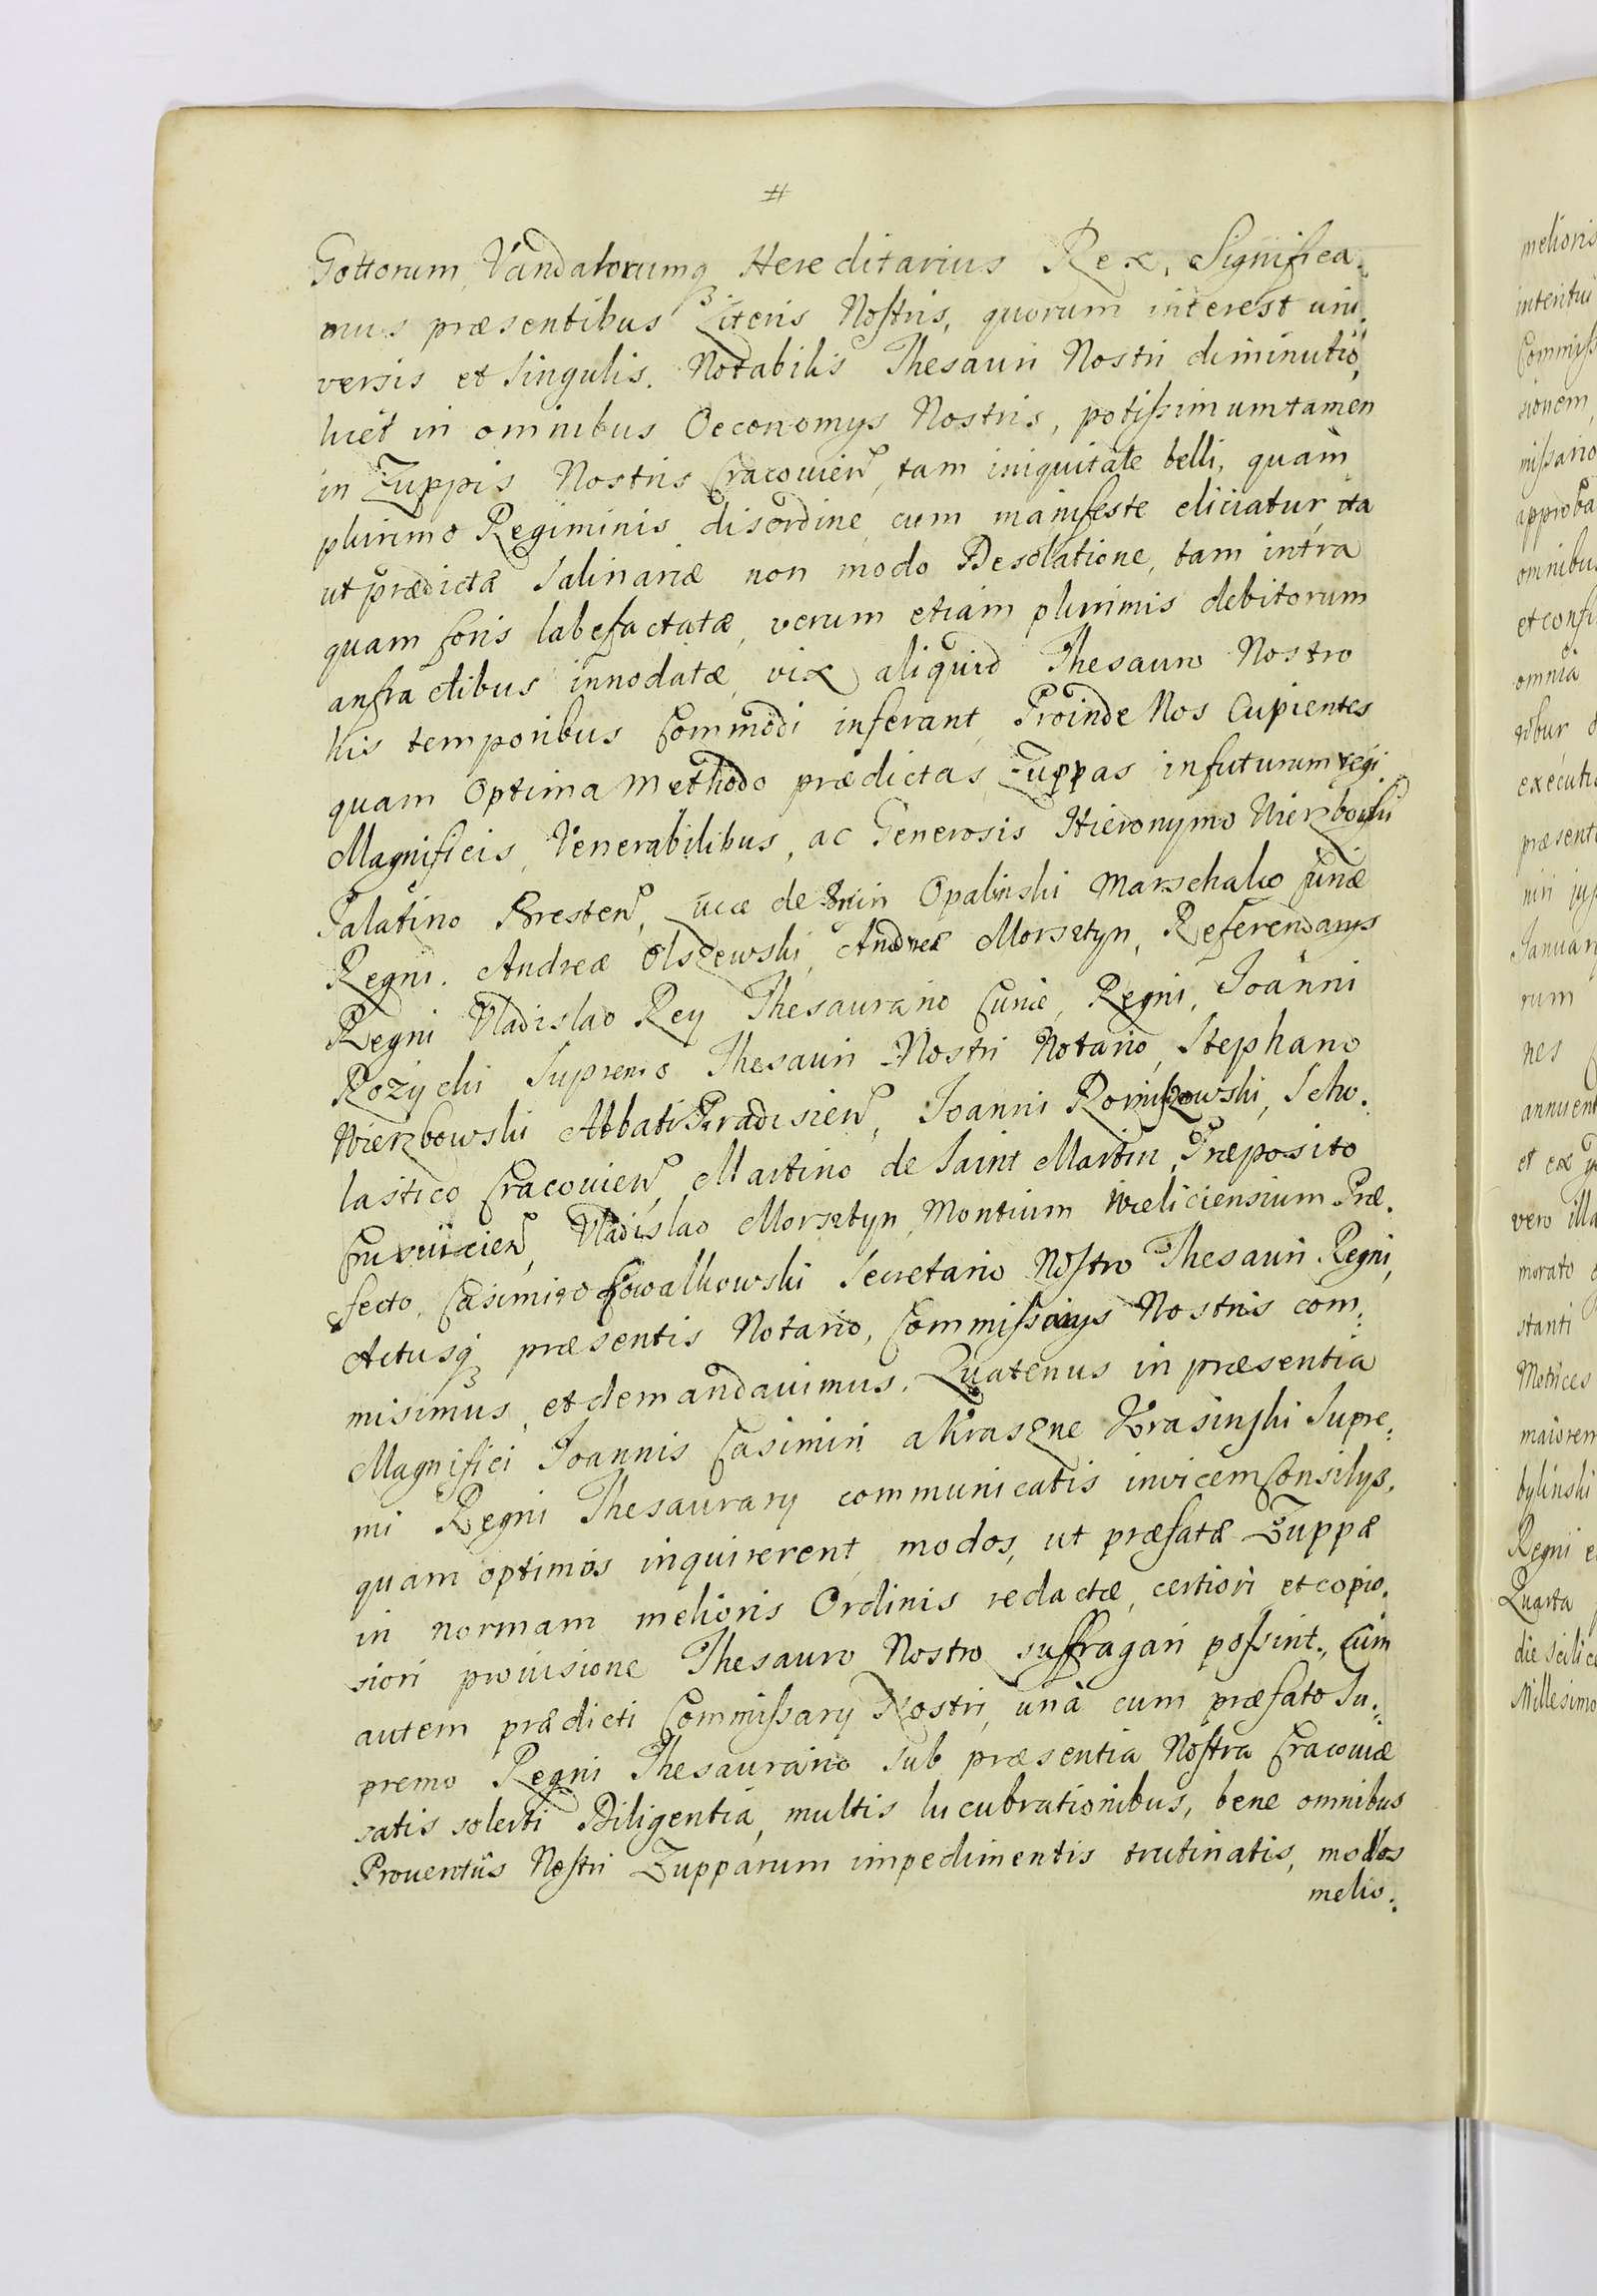 #
Gottorum, Vandalorumq3 Hereditarius Rex, Significa:
mus præsentibus Literis Nostris, quorum interest uni:
versis et singulis. Notabilis Thesauri Nostri diminutio,
licet in omnibus Oeconomijs Nostris, potissimum tamen
in Zuppis Nostris Cracouien, tam iniquitate belli, quàm
plurimo Regiminis disordine, cum manifeste eliciatur, ita
ut prædictæ Salinariæ non modo Desolatione, tam intra
quam foris labefactatæ, verum etiam plurimis debitorum
anfractibus innodatæ, vix aliquid Thesauro Nostro
his temporibus Commodi inferant, Proinde Nos Cupientes
quam Optima Methodo prædictas Zuppas in futurum regi
Magnificis, Venerabilibus, ac Generosis Hieronymo Wierzbowski
Palatino Bresten, Lucæ de Bnin Opalinski Marschalco Curiæ
Regni. Andreæ Olszewski, Andreæ Morsztyn, Referendarijs
Regni Vladislao Rey Thesaurario Curiæ, Regni, Joanni
Rozycki Supremo Thesauri Nostri Notario, Stephano
Wierzbowski Abbati Paradisien, Joanni Romiszowski, Scho:
lastico Cracouien, Martino de Saint Martin, Præposito
Crusuicien, Vladislao Morsztyn, Montium Wieliciensium Præ:
fecto, Casimiro Kowalkowski Secretario Nostro Thesauri Regni,
Actusq3 præsentis Notario, Commissarijs Nostris com:
misimus, et demandauimus. Quatenus in præsentia
Magnifici Joannis Casimiri a Kraszne Krasinski Supre:
mi Regni Thesaurarij communicatis invicem Consilijs,
quam optimos inquirerent modos, ut præfatæ Zuppæ
in normam melioris Ordinis redactæ, certiori et copio:
siori prouisione Thesauro Nostro suffragari possint. Cùm
autem prædicti Commissarij Nostri, unà cum præfato Su:
premo Regni Thesaurario sub præsentia Nostra Cracouiæ
satis solerti Diligentia, multis lucubrationibus, bene omnibus
Prouentûs Nostri Zupparum impedimentis trutinatis, modos
melio:
melioris
interitui
Commiss
sionem,
missario
approba
omnibus
omnia
robur
executi
præsent
Januarij
rum
nes
annuent
vero illa
morato
stanti
Motrices
maiorem
bylinski
Regni e
Quarta
die scilice
Millesimo